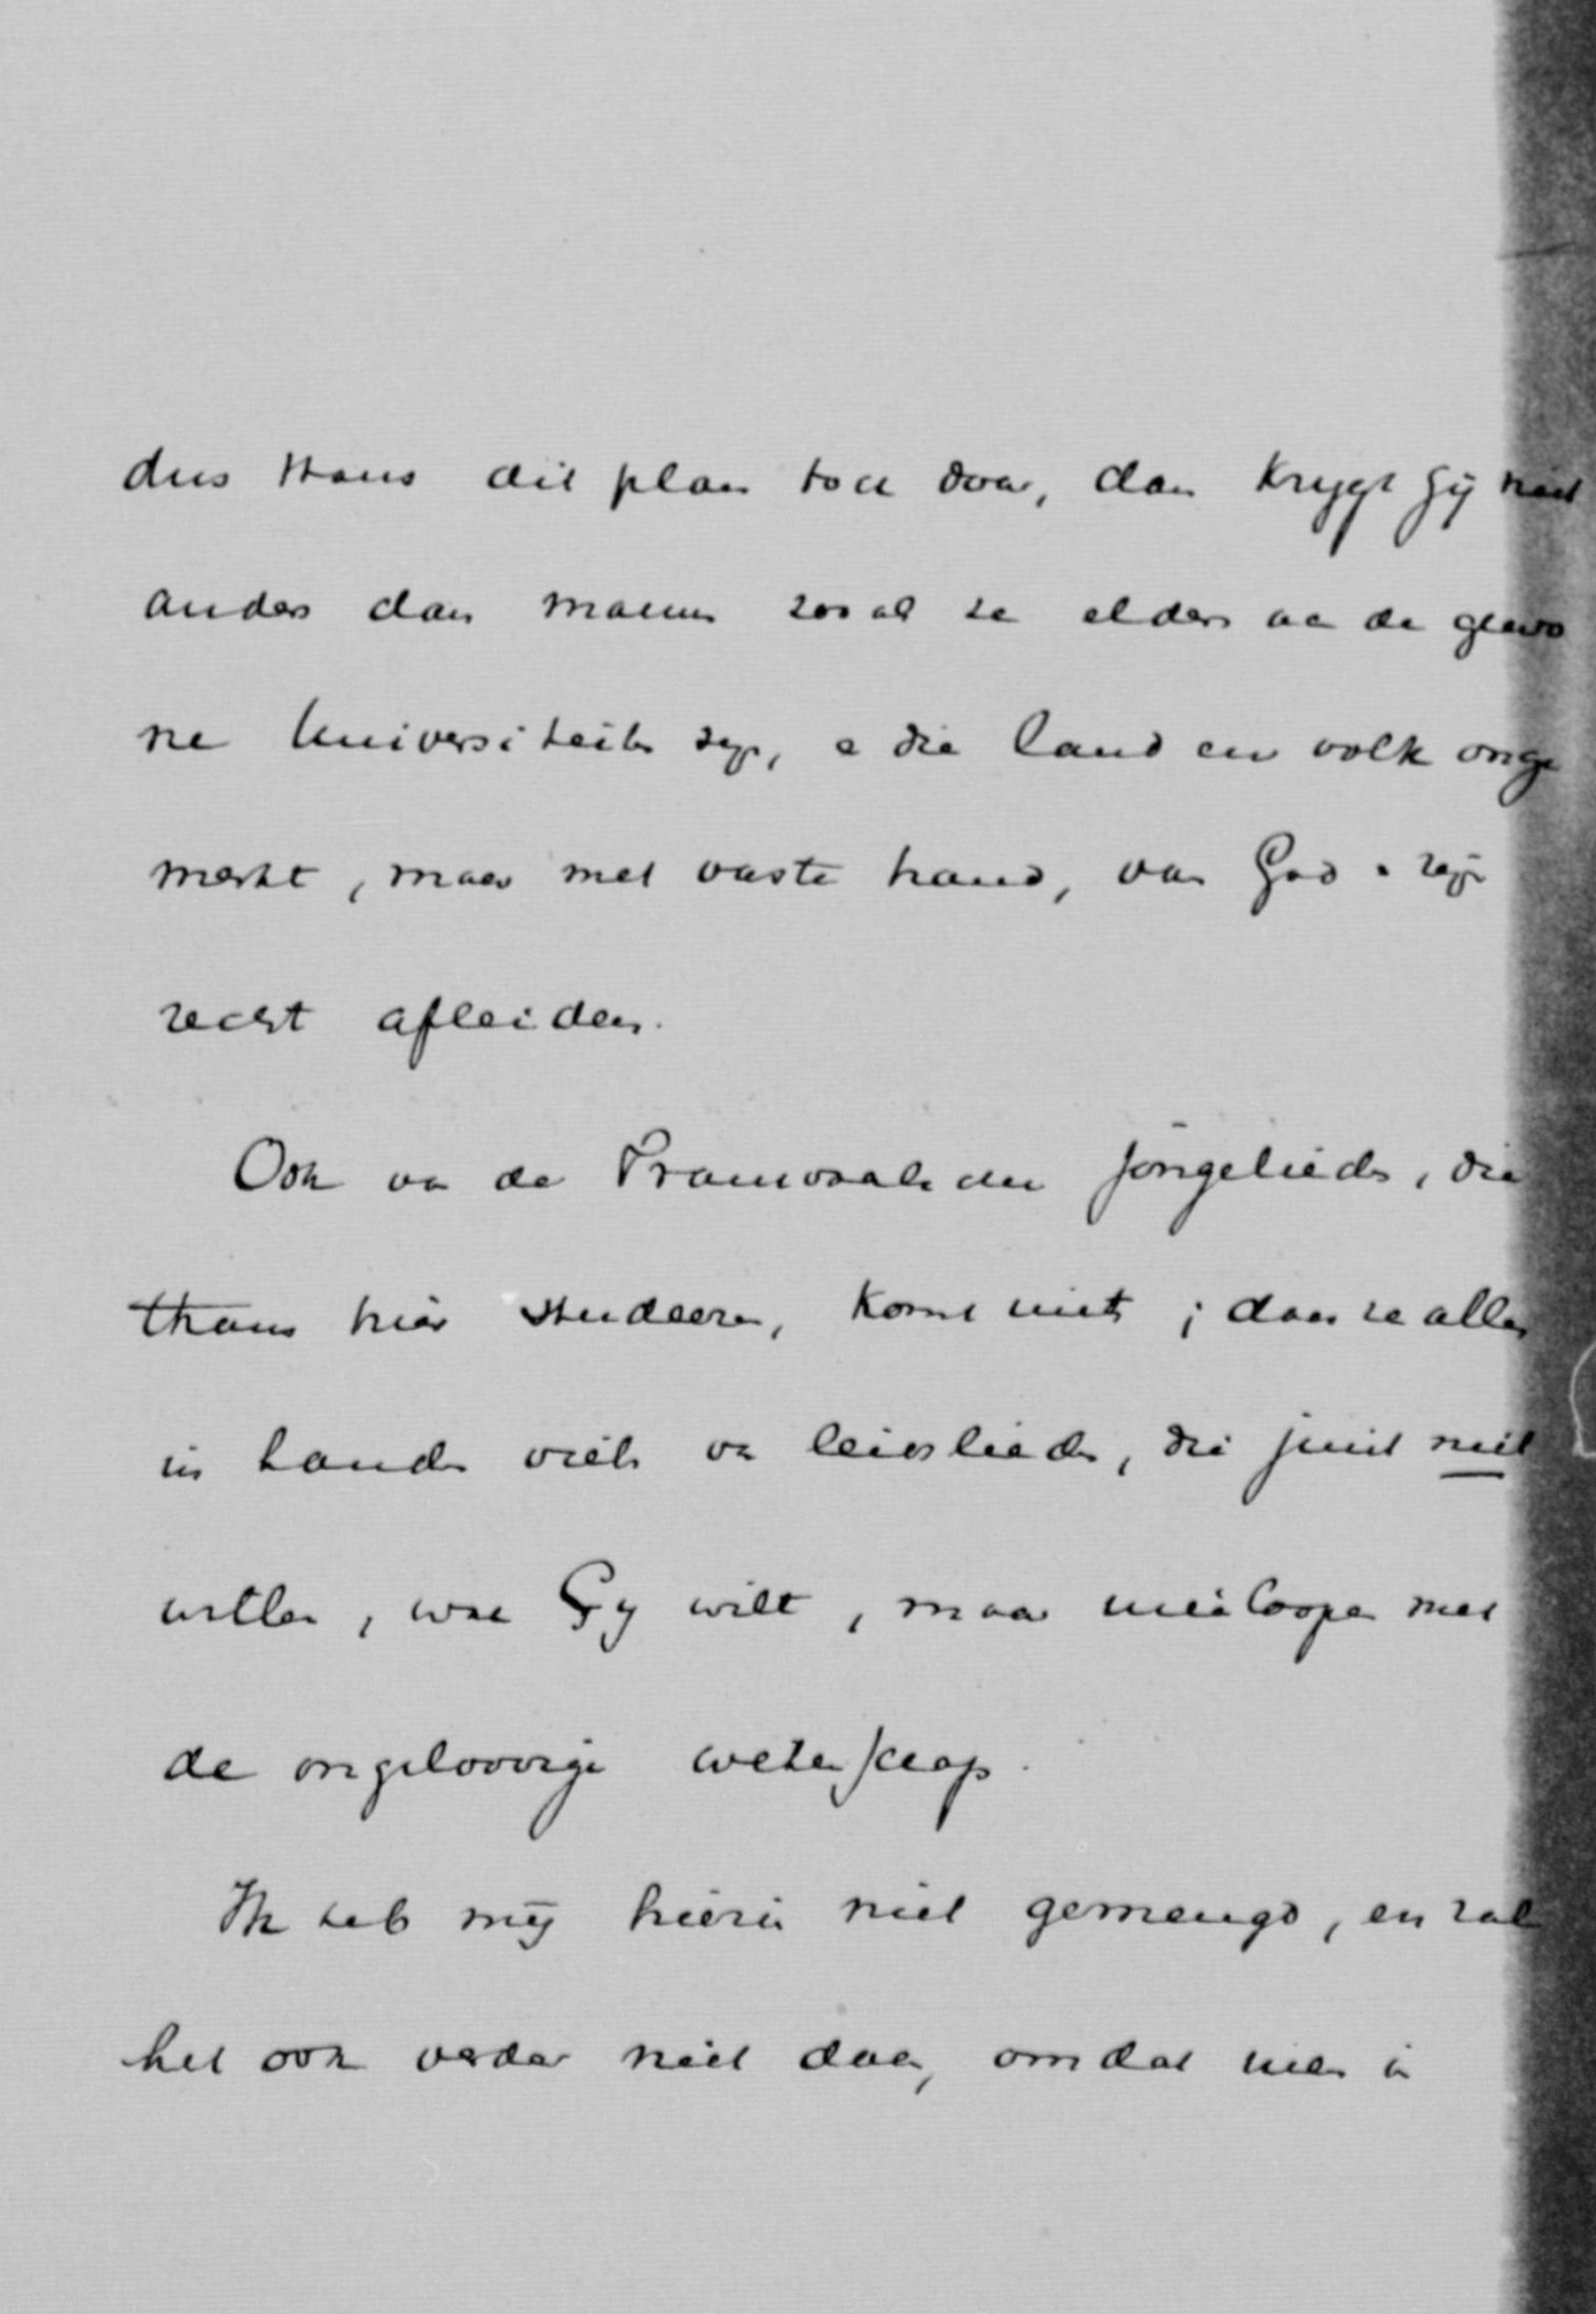 dus thans dit plan toch door, dan krygt gij niet
anders dan mannen zooals ze elders aan de gewo
ne Universiteiten zijn, en die land en volk onge
merkt, maar met vaste hand, van God en zijn
recht afleiden.
Ook van de Transvaalschen jongelieden, die
thans hier studeeren, komt niets; daar ze allen
in handen vielen van leidslieden, die juist niet
willen, wat Gy wilt, maar meêloopen met
de ongeloovige wetenschap.
Ik heb mij hierin niet gemengd, en zal
het ook verder niet doen, omdat men in